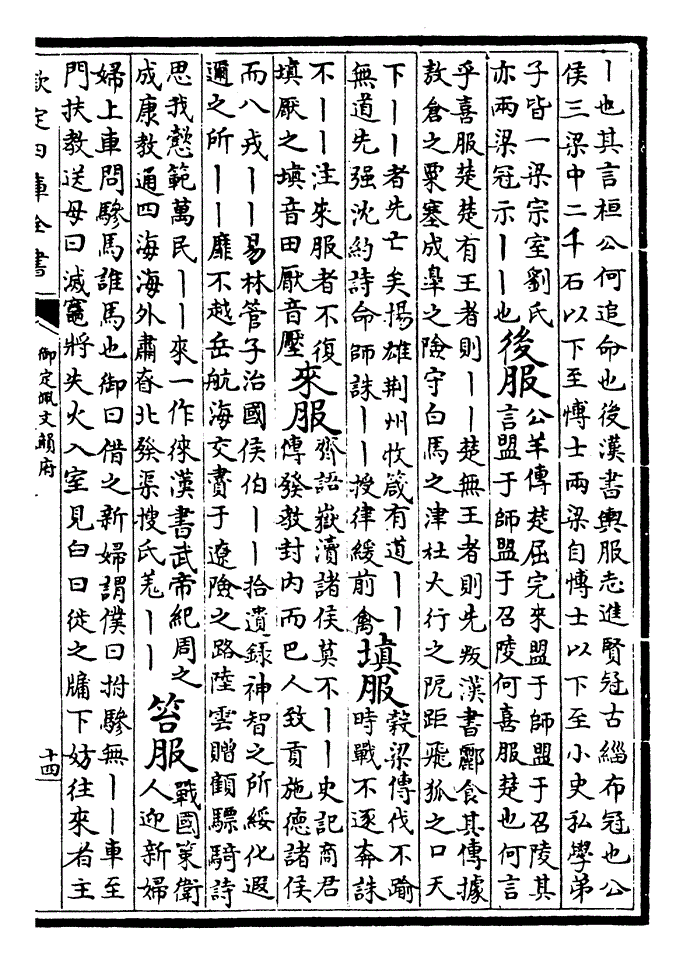 丨也其言桓公何追命也後漢書輿服志進賢冠古緇布冠也公
侯三梁中二千石以下至博士兩梁自博士以下至小史私學弟
子皆一梁宗室劉氏
亦兩梁冠示丨丨也
後服
公羊傳楚屈完來盟于師盟于召陵其
言盟于師盟于召陵何喜服楚也何言
乎喜服楚楚有王者則丨丨楚無王者則先叛漢書酈食其傳據
敖倉之粟塞成臯之險守白馬之津杜大行之阨距飛狐之口天
下丨丨者先亡矣揚雄荆州牧箴有道丨丨
無道先强沈約詩命師誅丨丨授律緩前禽
填服
榖梁傳伐不踰
時戰不逐奔誅
不丨丨注來服者不復
填厭之填音田厭音壓
來服
齊語嶽瀆諸侯莫不丨丨史記商君
傳發教封内而巴人致貢施德諸侯
而八戎丨丨易林管子治國侯伯丨丨拾遺錄神智之所綏化遐
邇之所丨丨靡不越岳航海交賮于遼險之路陸雲贈顧驃騎詩
思我懿範萬民丨丨來一作徠漢書武帝紀周之
成康教通四海海外肅昚北發渠搜氐羌丨丨
笞服
戰國策衛
人迎新婦
婦上車問驂馬誰馬也御曰借之新婦謂僕曰拊驂無丨丨車至
門扶教送母曰滅竈將失火入室見臼曰徙之牖下妨往來者主
欽定四庫全書
御定佩文韻府
十四